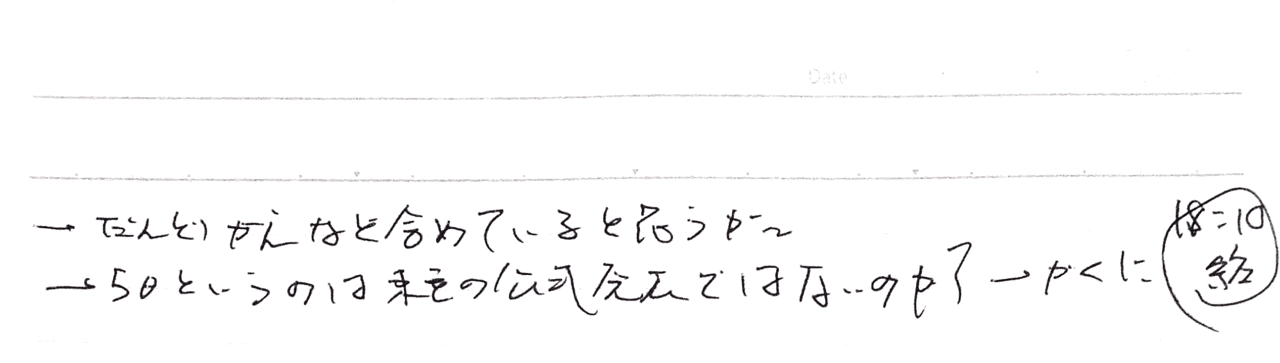 Date
→ だんどりがえなど含めていると思うが〜
→ 50というのは東電の公式発表ではないのか? → かくに 18:10